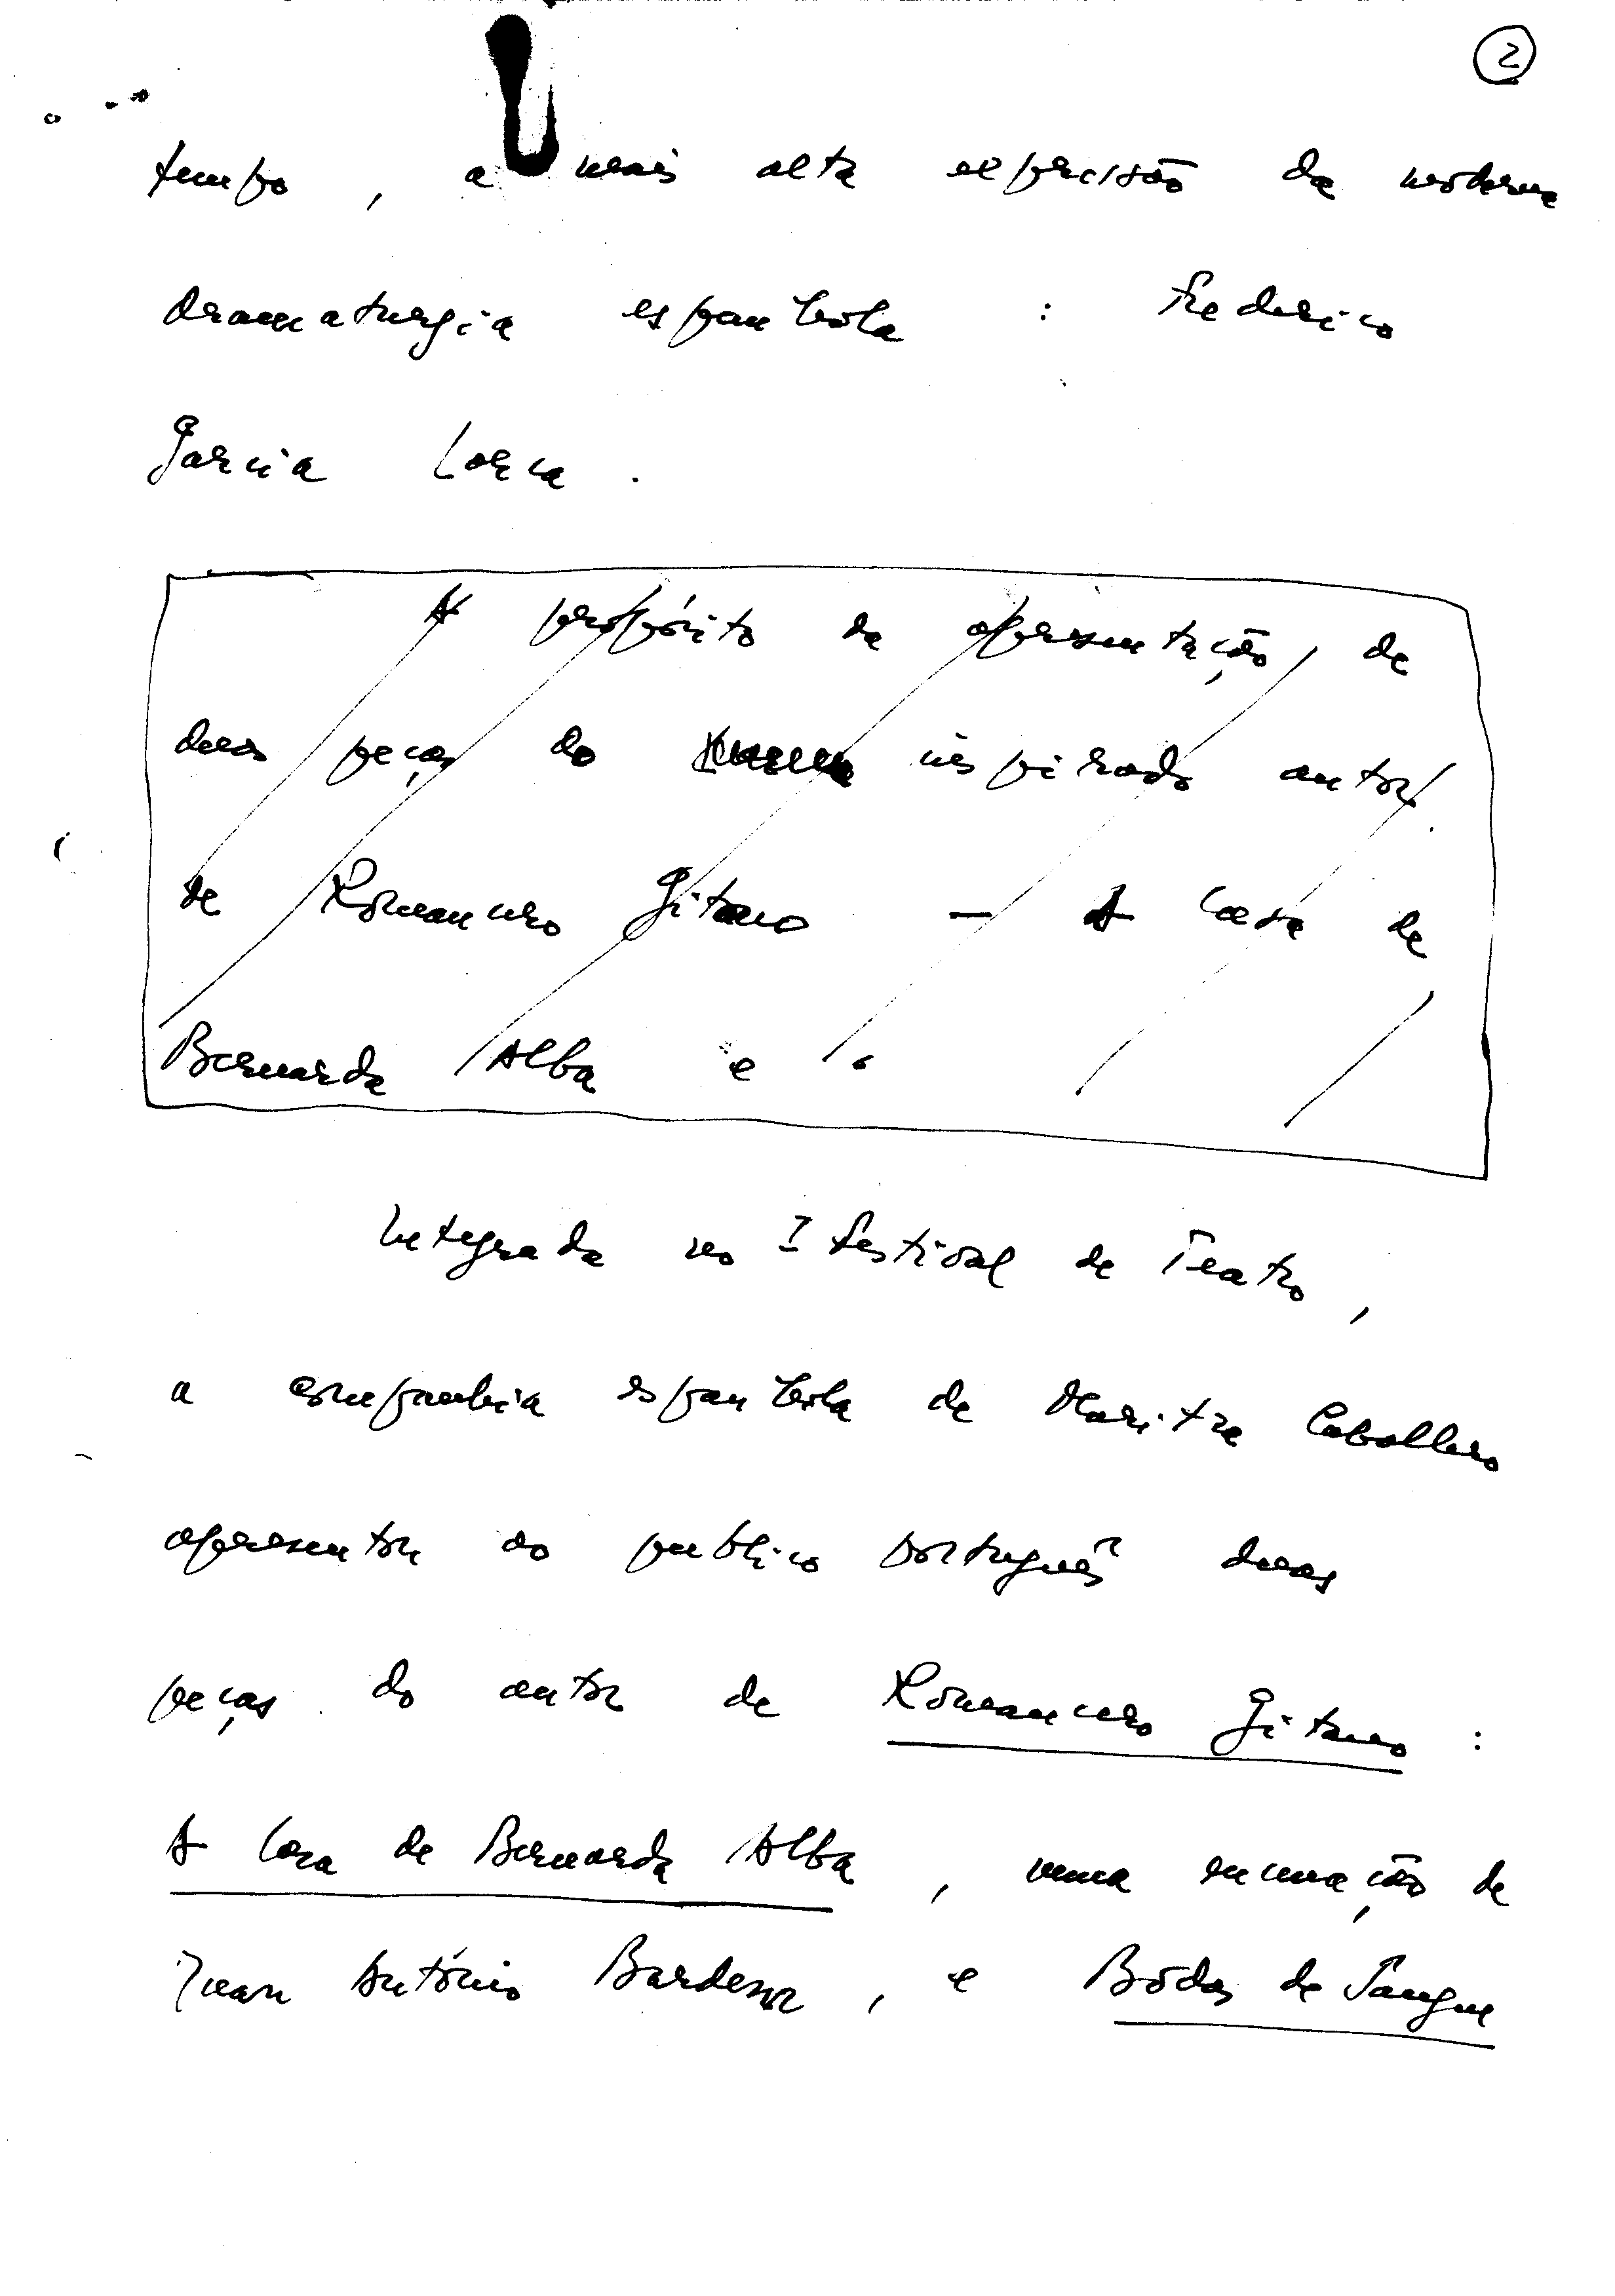 2
tempo, a mais alta expressão da moderna
dramaturgia espanhola : Frederico
Garcia Lorca .
A propósito da apresentação, de
duas peças do inspirado autor
de Romancero Gitano — A Casa de
Bernarda Alba e
Integrada no I Festival de Teatro,
a companhia espanhola de Maritza Caballero
apresentou ao publico português duas
peças do autor de Romancero Gitano :
A Casa de Bernarda Alba, numa encenação de
Juan António Bardem, e Bodas de Sangue